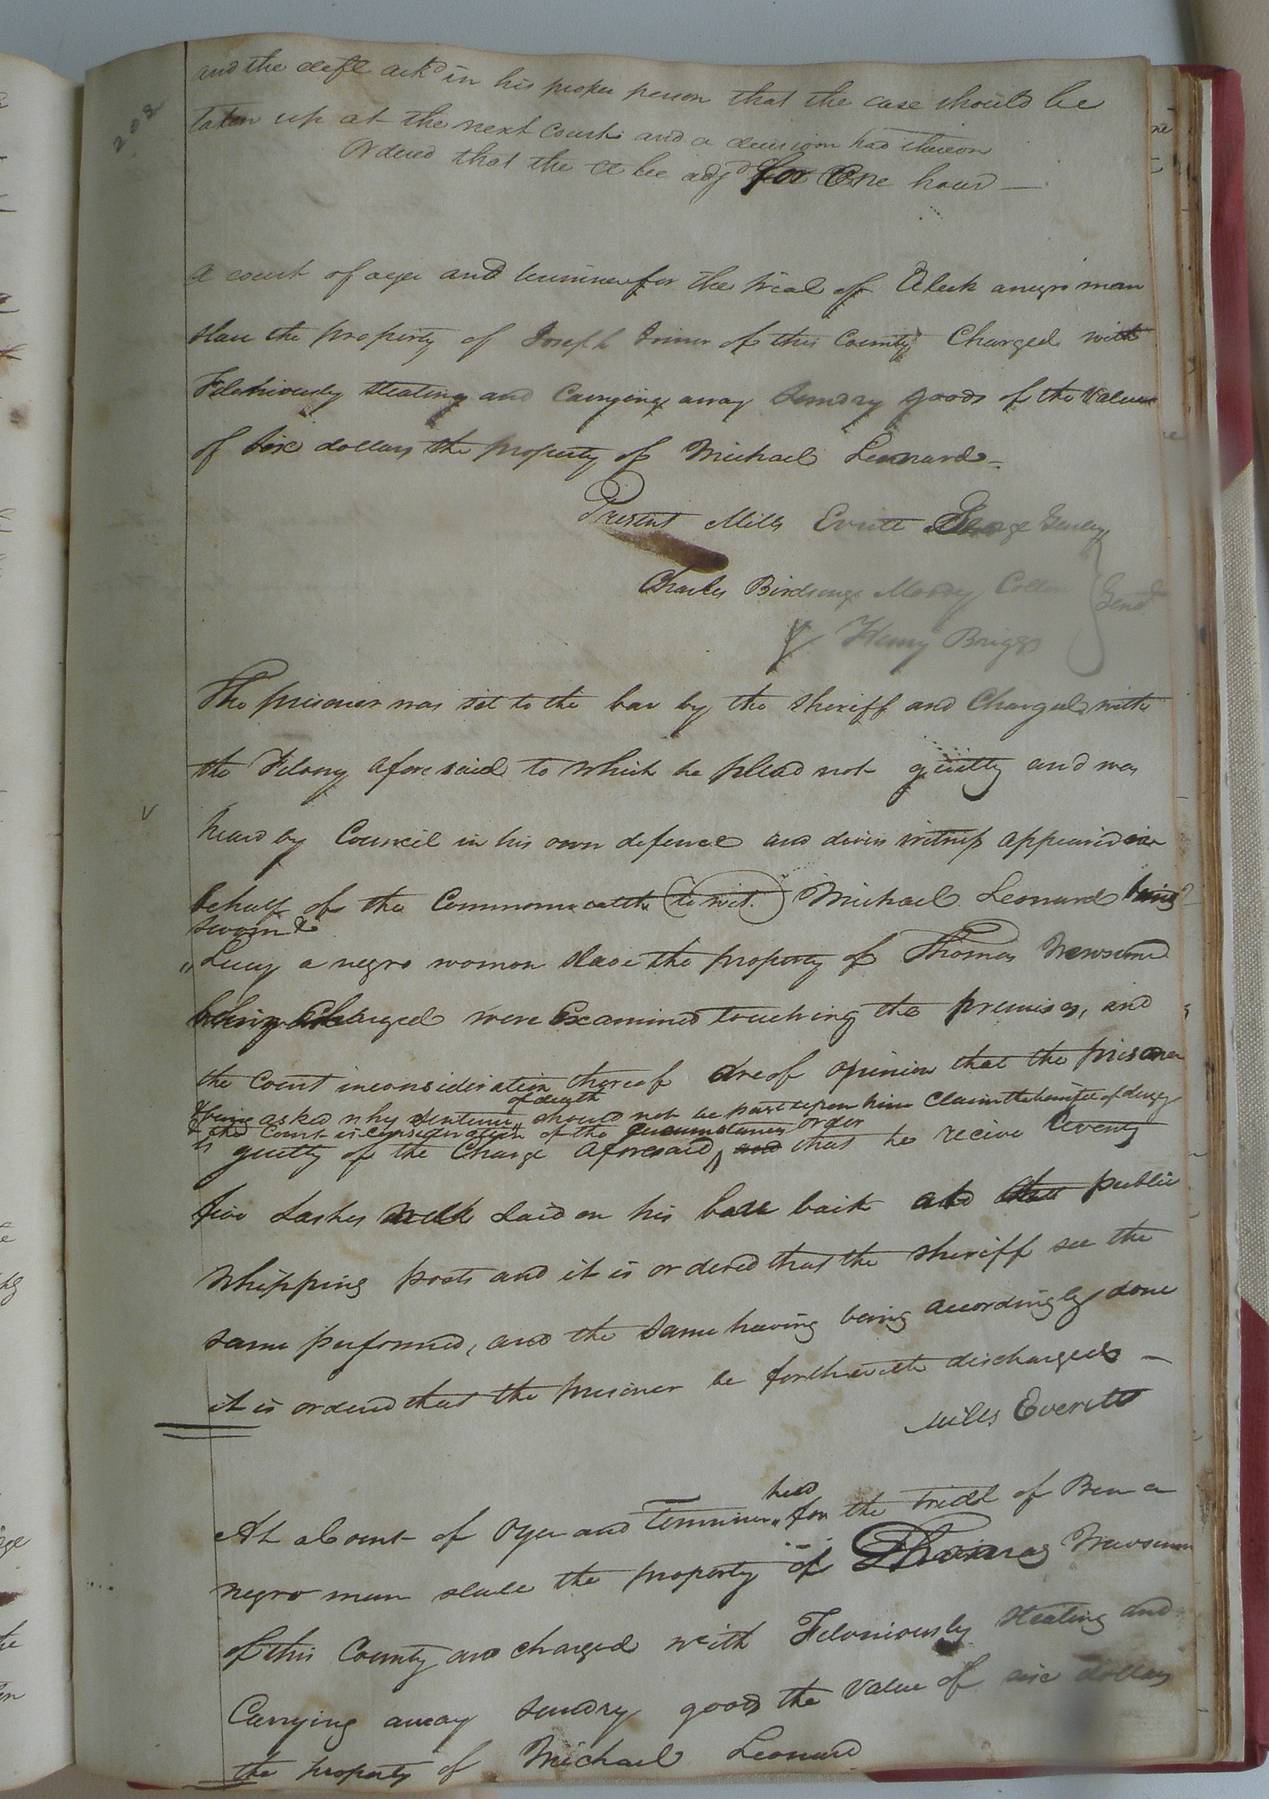 203
and the deft ackd in his proper person that the case should be
taken up at the next Court and a decision had thereon
Ordered that the Ct be adjd for One hour —
A court of oyer and terminer for the trial of Aleck a negro man
slave the property of Joseph Joiner of this County Charged with
Feloniously stealing and Carrying away Sundry goods of the Value
of six dollars the property of Michael Leonard —
Present Mills Evritt George Gurley
Charles Birdsong Moody Cotten Gent
& Henry Briggs
The prisoner was set to the bar by the Sheriff and Charged with
the Felony aforesaid to which he plead not guilty and was
heard by Council in his own defence and divers witness appeared in
behalf of the Commonwealth (to wit) Michael Leonard being
sworn &
Lucy a negro woman slave the property of Thomas Newsum
being Charged were Examined touching the premises, and
the Court in consideration thereof are of opinion that the prisoner
of death
& being asked why Sentence should not be past upon him Claim the benifit of clergy
& the Court in consideration of the circumstances order
is guilty of the Charge aforesaid, and that he recive twenty
five Lashes well Laid on his bare back at the public
Whipping posts and it is ordered that the Sheriff see the
same performed, and the same having being accordingly done
it is ordered that the prisoner be forthwith discharged —
Mills Everitt
held
At a Court of Oyer and Terminer for the trial of Ben a
negro man slave the property of Thomas Newsum
of this County and charged with Feloniously stealing and
Carrying away sundry goods the Value of six dollars
the property of Michael Leonard